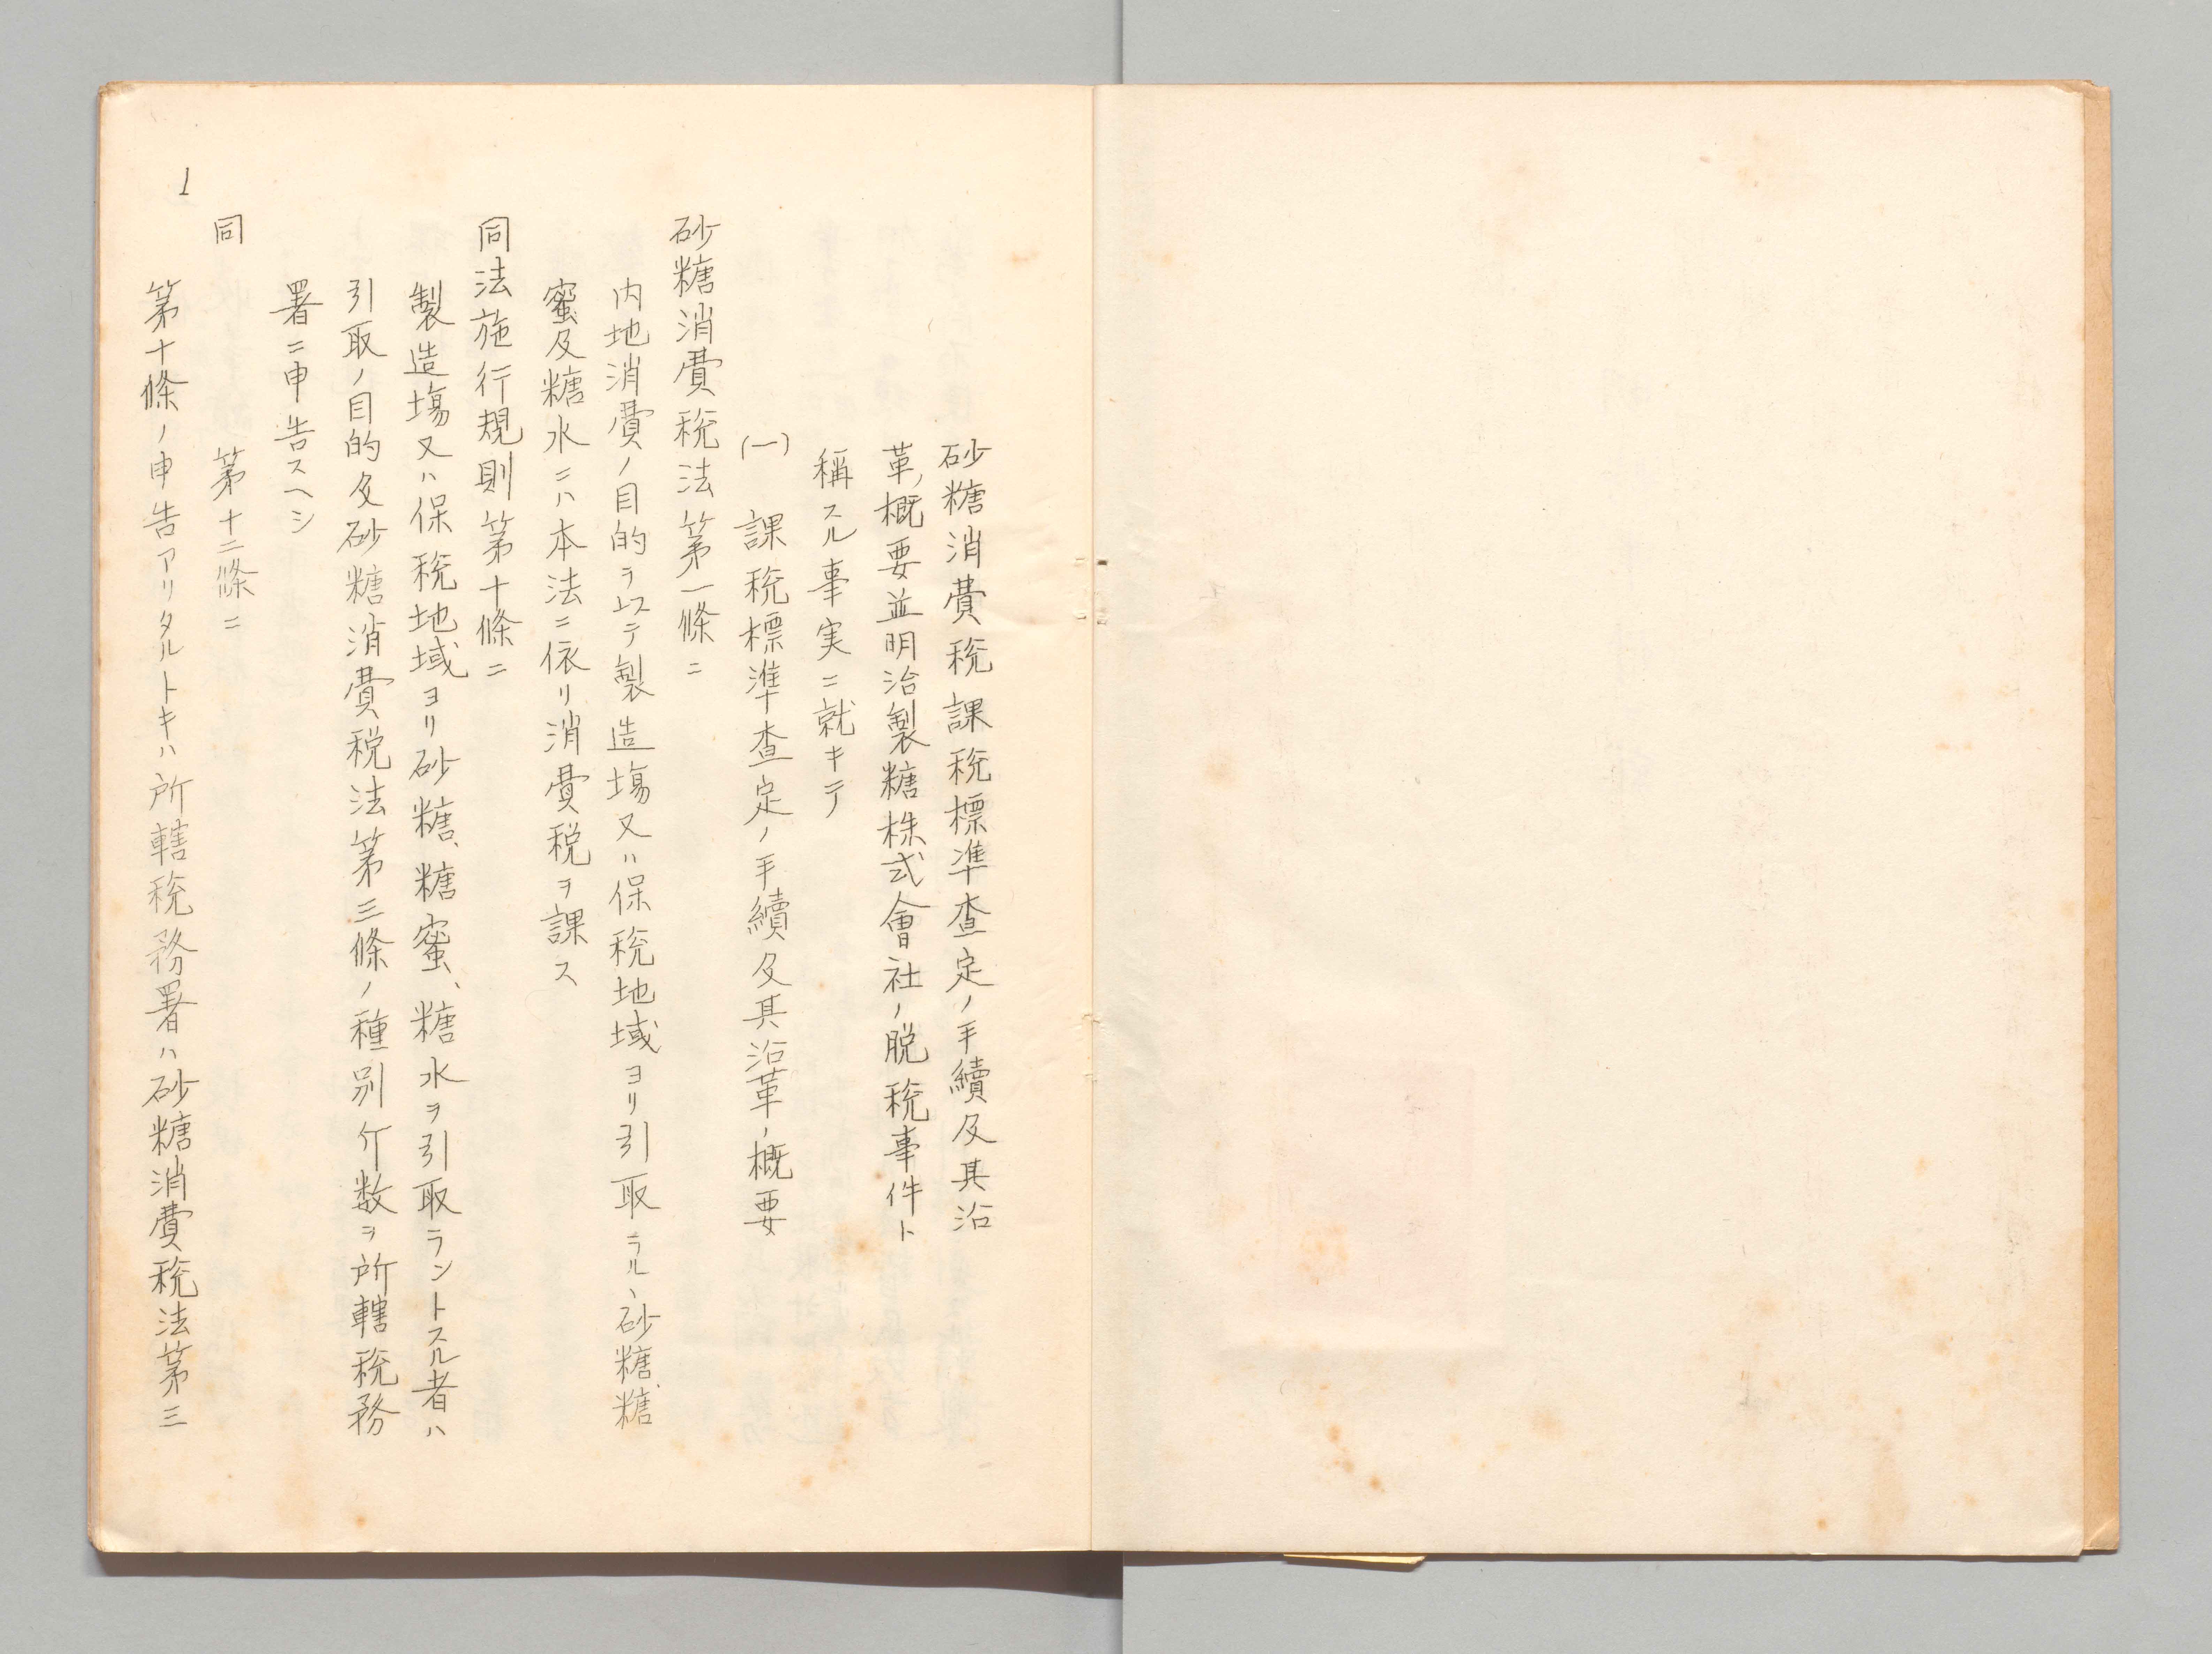 砂糖消費税課税標準査定ノ手續及其沿
革ノ概要並明治製糖株式會社ノ脱税事件ト
稱スル事実ニ就キテ
(一) 課税標準査定ノ手續及其沿革ノ概要
砂糖消費税法第一條ニ
内地消費ノ目的ヲ以テ製造場又ハ保税地域ヨリ引取ラルヽ砂糖、糖
蜜及糖水ニハ本法ニ依リ消費税ヲ課ス
同法施行規則第十條ニ
製造場又ハ保税地域ヨリ砂糖、糖蜜、糖水ヲ引取ラントスル者ハ
引取ノ目的及砂糖消費税法第三條ノ種別斤数ヲ所轄税務
署ニ申告スヘシ
同 第十二條ニ
第十條ノ申告アリタルトキハ所轄税務署ハ砂糖消費税法第三
1